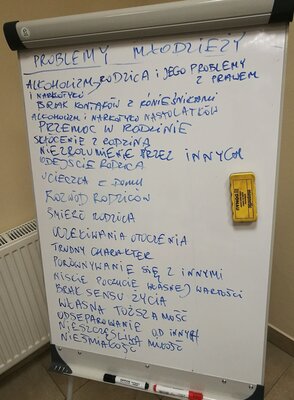 PROBLEMY MŁODZIEŻY
ALKOHOLIZM RODZICA I JEGO PROBLEMY
Z PRAWEM
I NARKOTYKI
BRAK KONTAKTÓW Z RÓWIEŚNIKAMI
ALKOHOLIZM I NARKOTYKI NASTOLATKÓW
PRZEMOC W RODZINIE
SKŁÓCENIE Z RODZINĄ
NIEZROZUMIENIE PRZEZ INNYCH
ODEJŚCIE RODZICA
UCIECZKA Z DOMU
ROZWÓD RODZICÓW
ŚMIERĆ RODZICA
OCZEKIWANIA OTOCZENIA
TRUDNY CHARAKTER
PORÓWNYWANIE SIĘ Z INNYMI
NISKIE POCZUCIE WŁASNEJ WARTOŚCI
BRAK SENSU ŻYCIA
WŁASNA TOŻSAMOŚĆ
ODSEPAROWANIE OD INNYCH
NIESZCZĘŚLIWA MIŁOŚĆ
NIEŚMIAŁOŚĆ